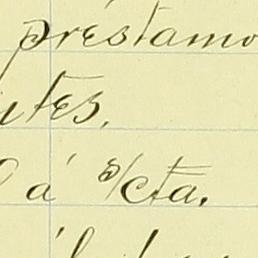 préstamo
ites,
á s/cta.